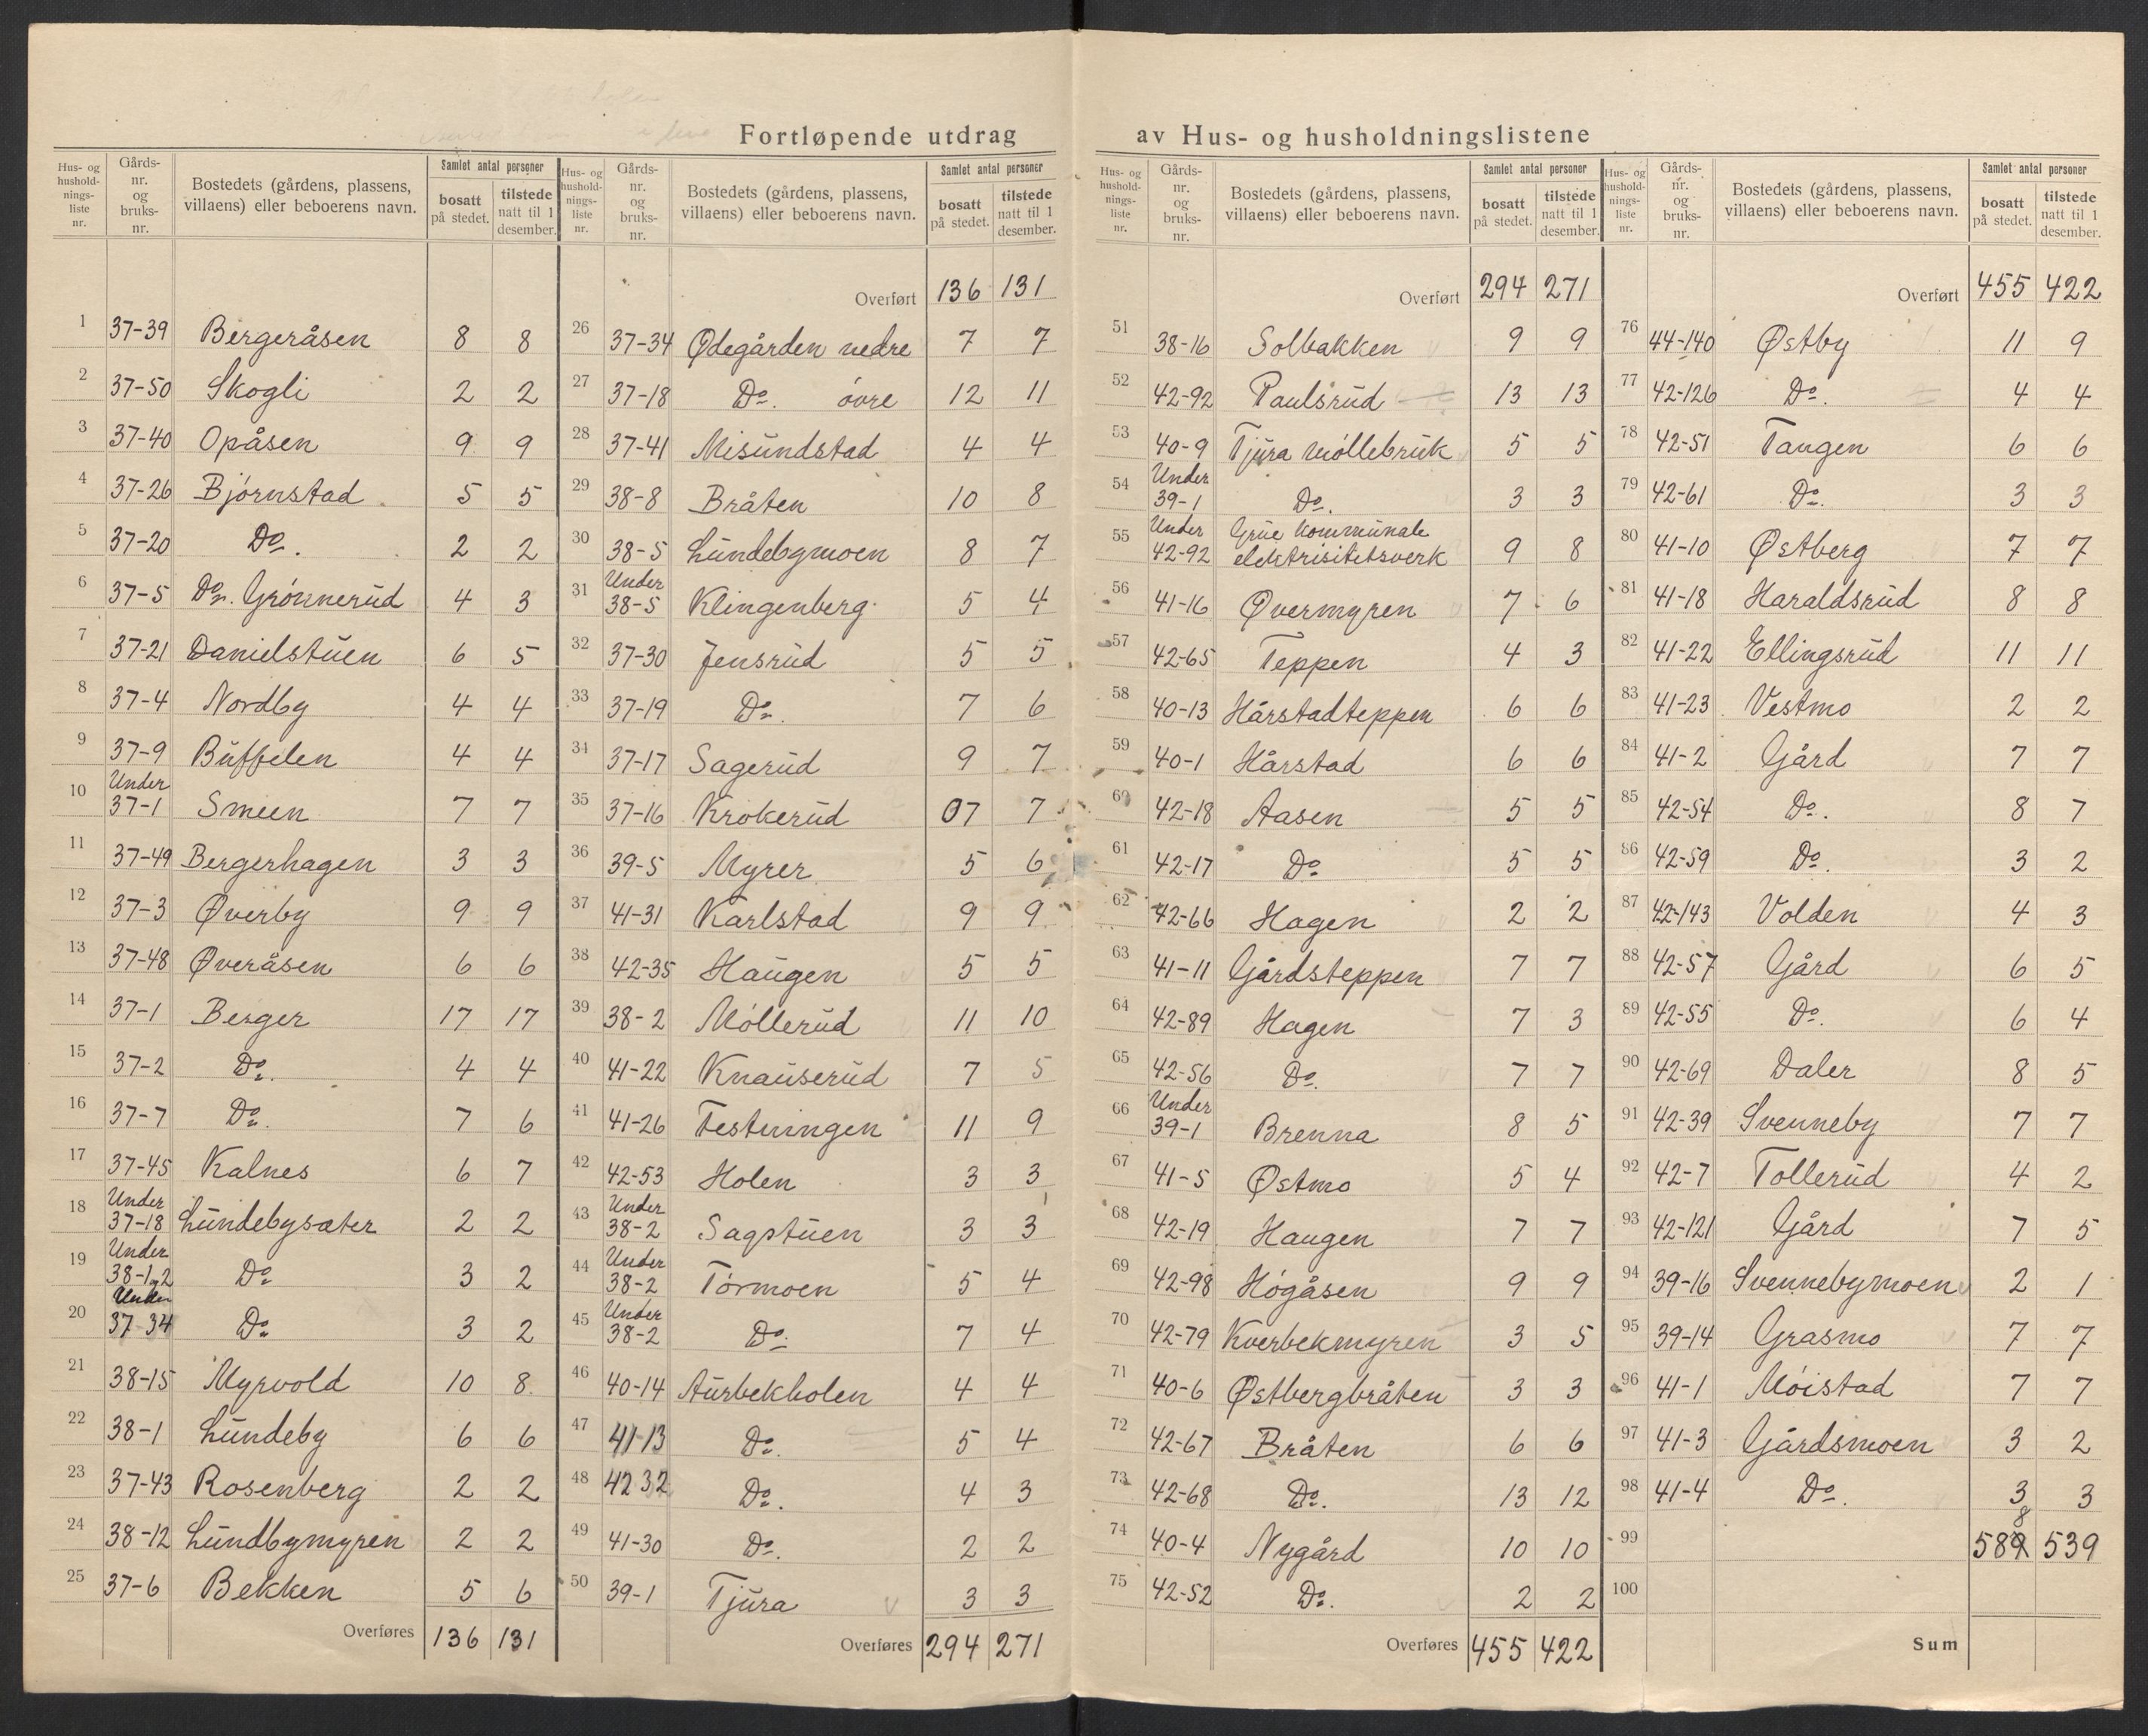 Fortløpende utdrag av Hus- og husholdningslistene
Hus- og husholdnings-liste nr. | Gårds-nr. og bruks-nr. | Bostedets (gårdens, plassens, villaens) eller beboerens navn. | Samlet antal personer | bosatt på stedet. | tilstede natt til 1 desember.
1 37-39 Bergeråsen 8 8
2 37-50 Skogli 2 2
3 37-40 Opåsen 9 9
4 37-26 Bjørnstad 5 5
5 37-20 Do. 2 2
6 37-5 Do. Grønnerud 4 3
7 37-21 Danielstuen 6 5
8 37-4 Nordby 4 4
9 37-9 Buffelen 4 4
10 Under 37-1 Smeen 7 7
11 37-49 Bergerhagen 3 3
12 37-3 Øverby 9 9
13 37-48 Øveråsen 6 6
14 37-1 Berger 17 17
15 37-2 Do. 4 4
16 37-7 Do. 7 6
17 37-45 Kalnes 6 7
18 Under 37-18 Lundebysæter 2 2
19 Under 38-1,2 Do 3 2
20 Under 37-34 Do 3 2
21 38-15 Myrvold 10 8
22 38-1 Lundeby 6 6
23 37-43 Rosenberg 2 2
24 38-12 Lundbymyren 2 2
25 37-6 Bekken 5 6
Overføres 136 131
Hus- og husholdnings-liste nr. | Gårds-nr. og bruks-nr. | Bostedets (gårdens, plassens, villaens) eller beboerens navn. | Samlet antal personer | bosatt på stedet. | tilstede natt til 1 desember.
Overført 136 131
26 37-34 Ødegården nedre 7 7
27 37-18 Do. øvre 12 11
28 37-41 Misundstad 4 4
29 38-8 Bråten 10 8
30 38-5 Lundebymoen 8 7
31 Under 38-5 Klingenberg 5 4
32 37-30 Jensrud 5 5
33 37-19 Do. 7 6
34 37-17 Sagerud 9 7
35 37-16 Krokerud 07 7
36 39-5 Myrer 5 6
37 41-31 Karlstad 9 9
38 42-35 Haugen 5 5
39 38-2 Møllerud 11 10
40 41-22 Knauserud 7 5
41 41-26 Festningen 11 9
42 42-53 Holen 3 3
43 Under 38-2 Sagstuen 3 3
44 Under 38-2 Tørmoen 5 4
45 Under 38-2 Do. 7 4
46 40-14 Aurbekholen 4 4
47 41-13 Do. 5 4
48 42 32 Do. 4 3
49 41-30 Do. 2 2
50 39-1 Tjura 3 3
Overføres 294 271
Hus- og husholdnings-liste nr. | Gårds-nr. og bruks-nr. | Bostedets (gårdens, plassens, villaens) eller beboerens navn. | Samlet antal personer | bosatt på stedet. | tilstede natt til 1 desember.
Overført 294 271
51 38-16 Solbakken 9 9
52 42-92 Paulsrud 13 13
53 40-9 Tjura møllebruk 5 5
54 Under 39-1 Do. 3 3
55 Under 42-92 Grue kommunale elektrisitetsverk 9 8
56 41-16 Øvermyren 7 6
57 42-65 Teppen 4 3
58 40-13 Hårstadteppen 6 6
59 40-1 Hårstad 6 6
60 42-18 Aasen 5 5
61 42-17 Do 5 5
62 42-66 Hagen 2 2
63 41-11 Gårdsteppen 7 7
64 42-89 Hagen 7 3
65 42-56 Do. 7 7
66 Under 39-1 Brenna 8 5
67 41-5 Østmo 5 4
68 42-19 Haugen 7 7
69 42-98 Høgåsen 9 9
70 42-79 Kverbekmyren 3 5
71 40-6 Østbergbråten 3 3
72 42-67 Bråten 6 6
73 42-68 Do. 13 12
74 40-4 Nygård 10 10
75 42-52 Do. 2 2
Overføres 455 422
Hus- og husholdnings-liste nr. | Gårds-nr. og bruks-nr. | Bostedets (gårdens, plassens, villaens) eller beboerens navn. | Samlet antal personer | bosatt på stedet. | tilstede natt til 1 desember.
Overført 455 422
76 44-140 Østby 11 9
77 42-126 Do. 4 4
78 42-51 Tangen 6 6
79 42-61 Do. 3 3
80 41-10 Østberg 7 7
81 41-18 Haraldsrud 8 8
82 41-22 Ellingsrud 11 11
83 41-23 Vestmo 2 2
84 41-2 Gård 7 7
85 42-54 Do. 8 7
86 42-59 Do. 3 2
87 42-143 Volden 4 3
88 42-57 Gård 6 5
89 42-55 Do. 6 4
90 42-69 Daler 8 5
91 42-39 Svenneby 7 7
92 42-7 Tollerud 4 2
93 42-121 Gård 7 5
94 39-16 Svennebymoen 2 1
95 39-14 Grasmo 7 7
96 41-1 Møistad 7 7
97 41-3 Gårdsmoen 3 2
98 41-4 Do. 3 3
99 588 539
100
Sum